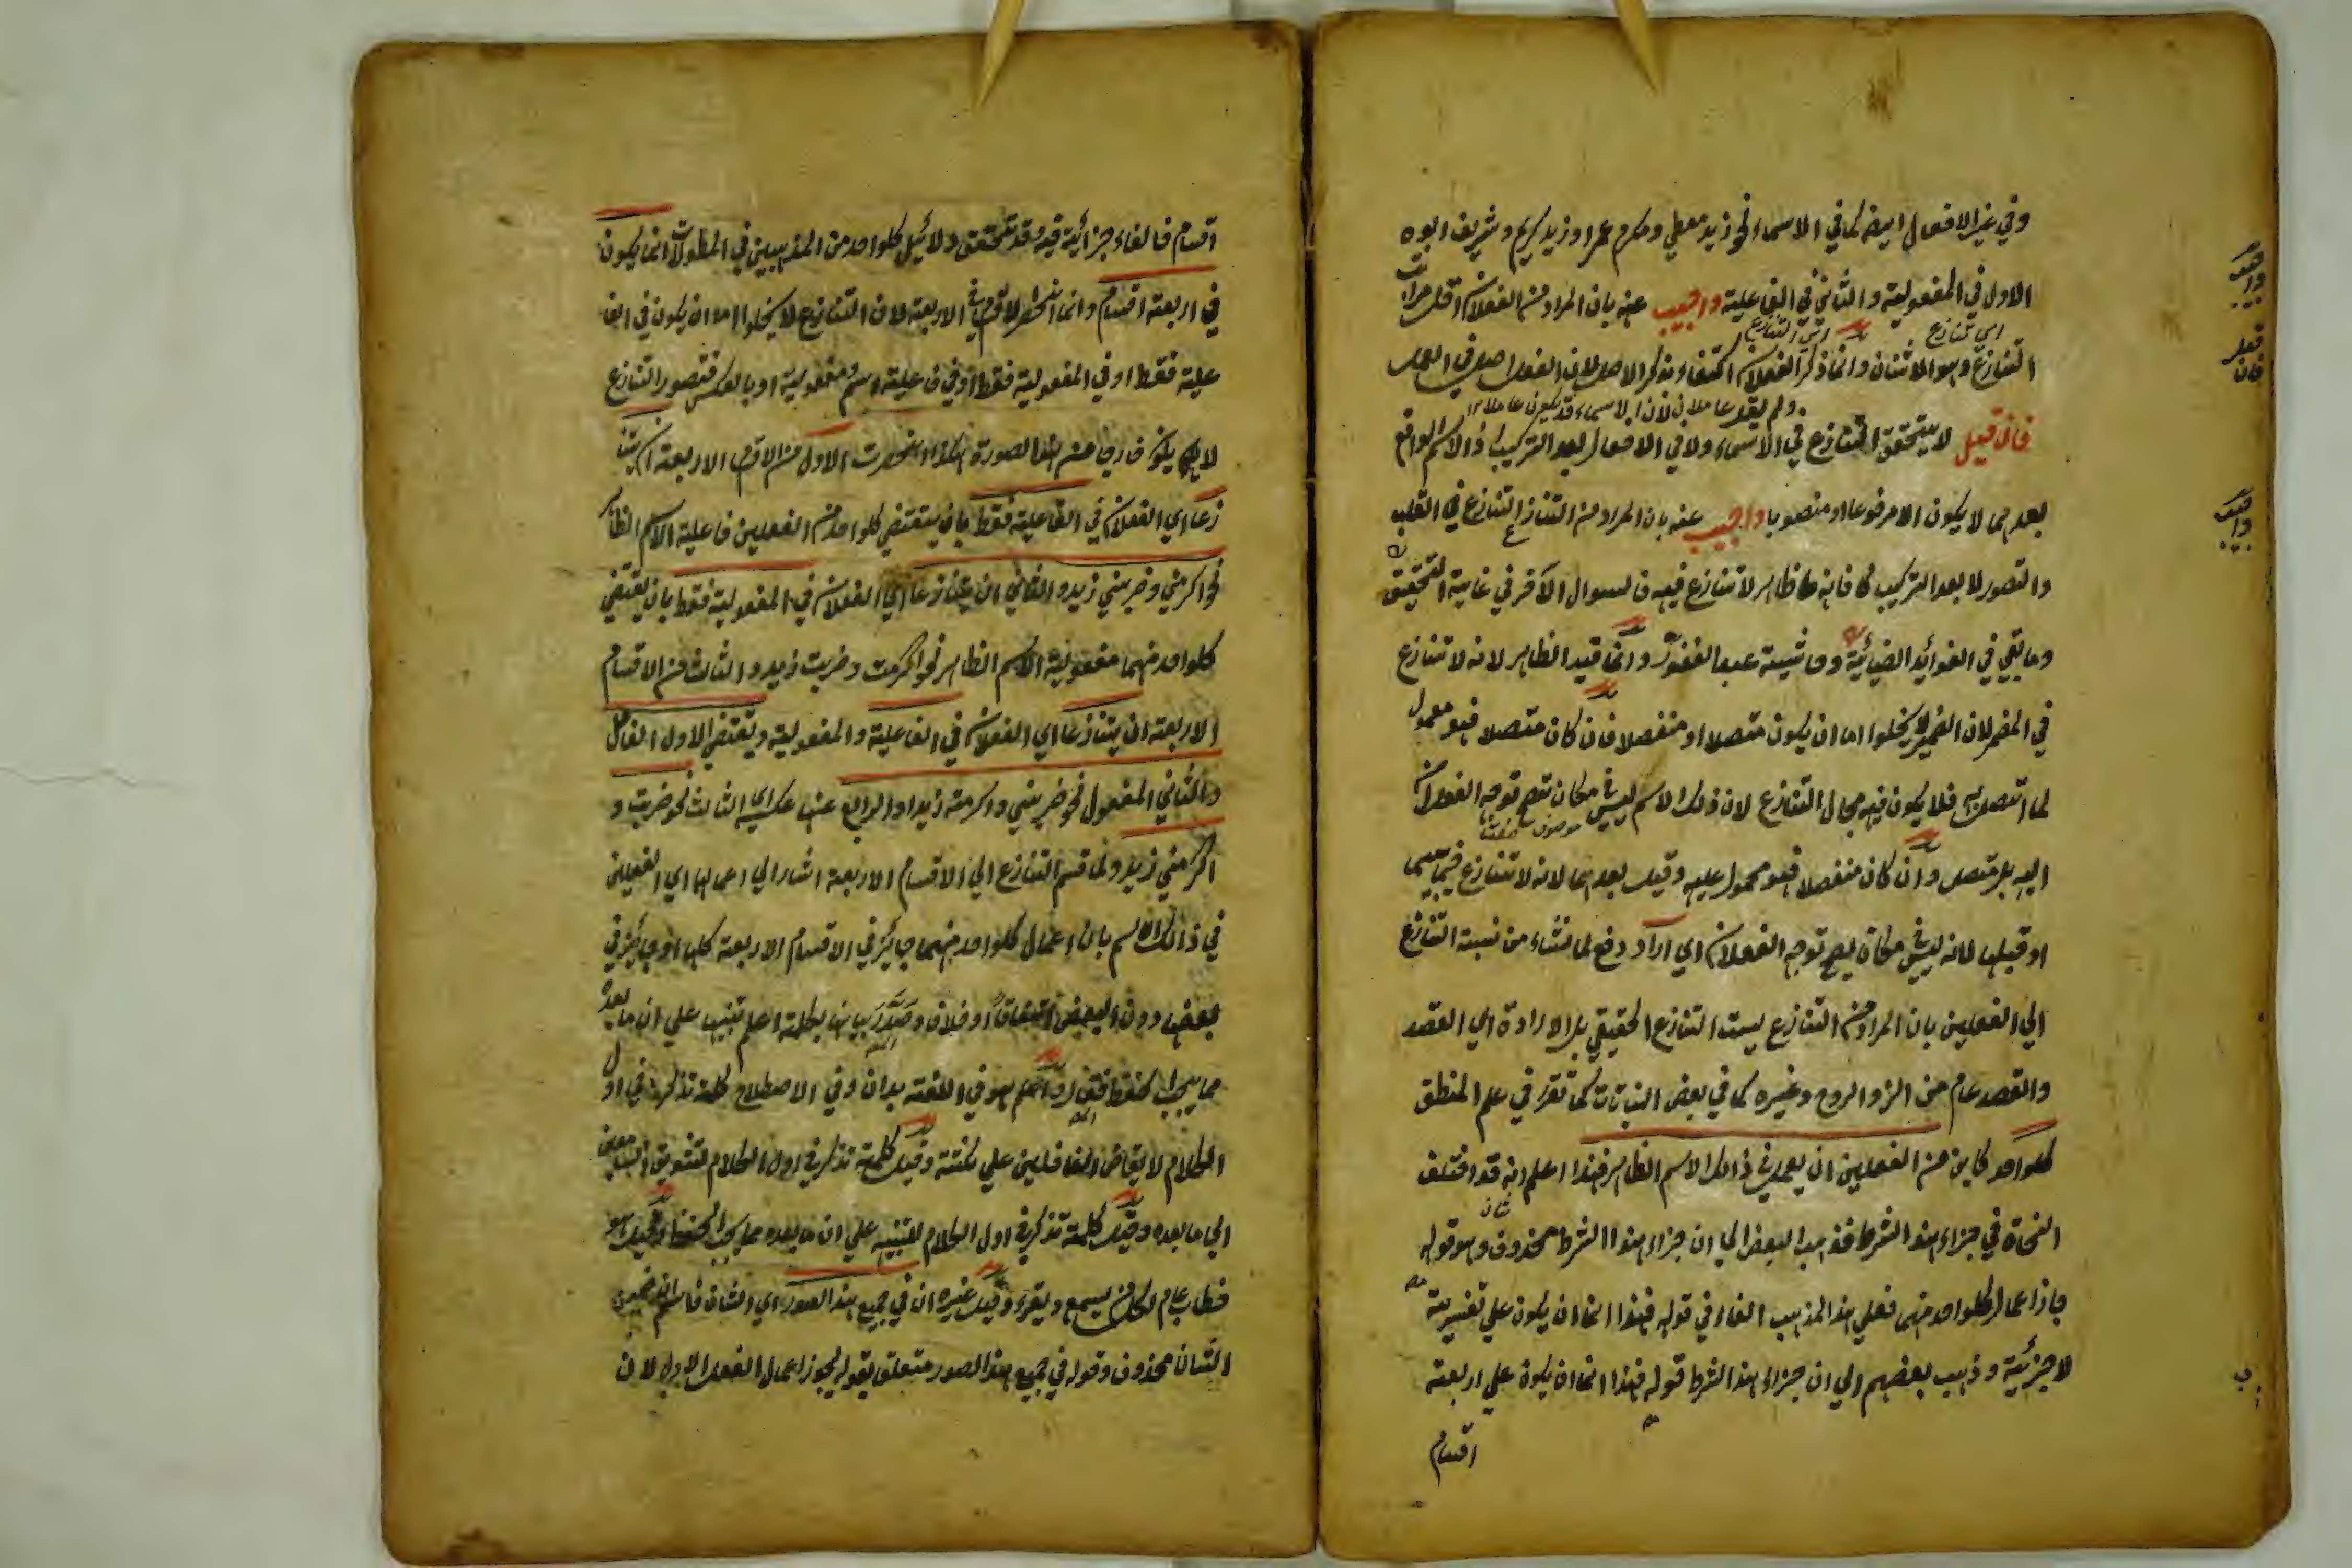 وفي غير الافعال ايضا كما في الاسماء نحو زيد معطي ومكرم عمرا وزيد كريم وشريف ابوه
الاول في المفعولية والثاني في الفاعلية واجيب عنه بان المراد من الفعلان اقل مراتب
اي تنازع
التنازع وهو الاثنان وانما ذكر الفعلان اكتفاء بذكر الاصل لان الفعل اصل في العمل
ولم يقل عاملان لان الاسماء قد يكون عاملا
فان قيل لا يتحقق التنازع في الاسماء ولا في الافعال بعد التركيب اذ الاسم الواقع
بعدهما لا يكون الا مرفوعا او منصوبا واجيب عنه بان المراد من التنازع التنازع في القلب
والتصور لا بعد التركيب فانه ظاهر لا تنازع فيه فالسوال الآخر في غاية التحقيق
وما بقي في الفوائد الضيائية وحاشية عبد الغفور وانما قيد الظاهر لانه لا تنازع
في المضمر لان الضمير لا يخلوا اما ان يكون متصلا او منفصلا فان كان متصلا فهو معمول
لما اتصل به فلا يكون فيه مجال التنازع لان ذلك الاسم ليس في مكان تصح توجه الفعلان
اليه بل متصل وان كان منفصلا فهو محمول عليه وقيل بعدهما لانه لا تنازع فيما
او قبلهما لانه ليس في مكان يصح توجه الفعلان اي اراد دفع لما نشاء من نسبة التنازع
الي الفعلين بان المراد من التنازع ليست التنازع الحقيقي بل الارادة اي القصد
والقصد عام من الروح وغيره كما في بعض النباتات كما تقرر في علم المنطق
كلواحد كاين من الفعلين ان يعمل في ذالك الاسم الظاهر فهذا اعلم انه قد اختلف
النحاة في جزاء هذا الشرط فذهب البعض الي ان جزاء هذا الشرط محذوف وهو قوله
جاز اعمال كلواحد منهما فعلي هذا المذهب الفاء في قوله فهذا انما ان يكون علي تفسيرية
لا جزئية وذهب بعضهم الي ان جزاء هذا الشرط قوله فهذا انما ان يكون علي اربعة
اقسام
اقسام فالفاء جزائية فيه وقد تحقق دلائل كلواحد من المذهبين في المطولات انما يكون
في اربعة اقسام وانما انحصر الاقسام في الاربعة لان التنازع لا يخلوا اما ان يكون في الفا
علية فقط او في المفعولية فقط او في فاعلية اسم ومفعولية او بالعكس فتصور التنازع
لا يكون خارجا من هذا الصورة هكذا انحصرت الاول من الاقسام الاربعة ان يتنا
زعا اي الفعلان في الفاعلية فقط بان يقتضي كلواحد من الفعلين فاعلية الاسم الظاهر
نحو اكرمني وضربني زيد والثاني ان يتنازعا اي الفعلان في المفعولية فقط بان يقتضي
كلواحد منهما مفعولية الاسم الظاهر نحو اكرمت وضربت زيد والثالث من الاقسام
الاربعة ان يتنازعا اي الفعلان في الفاعلية والمفعولية ويقتضي الاول الفاعل
والثاني المفعول نحو ضربني واكرمت زيدا والرابع عنها عكس اي الثالث نحو ضربت و
اكرمني زيد ولما قسم التنازع الي الاقسام الاربعة اشار الي اعمالها اي الفعلين
في ذالك الاسم بان اعمال كلواحد منهما جايز في الاقسام الاربعة كلها او جايز في
بعضها دون البعض اتفاقا او خلافا وصدر بيانها بكلمة اعلم تنبيها علي ان ما بعده
مما يجب حفظه فقال واعلم هو في اللغة بدان وفي الاصطلاح كلمة تذكر في اول
الكلام لايقاض الغافلين علي نكتة وقيل كلمة تذكر في اول الكلام لتشويق السامعين
الي ما بعده وقيل كلمة تذكر في اول الكلام لتنبيه علي ان ما بعده مما يجب الحفظ وقيل هو
خطاب عام لكل من يسمع ويقرء وقيل غيره ان في جميع هذا الصور اي الشان فاسم ان ضمير
الشان محذوف وقوله في جميع هذا الصور متعلق بقوله يجوز اعمال الفعل الاول لان